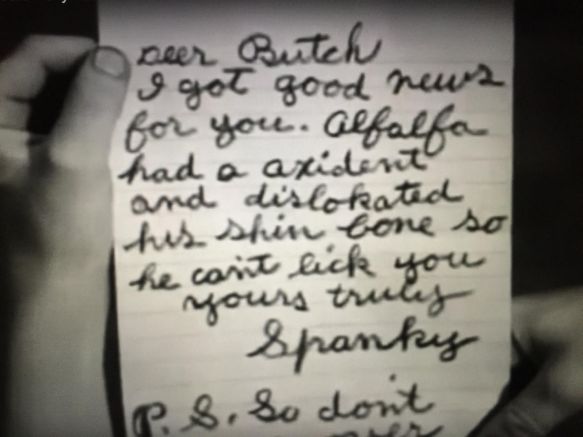 Deer Butch
I got good news
for you. Alfalfa
had a axident
and dislokated
his shin bone so
he can't lick you
yours truly
Spanky
P.S. So don't